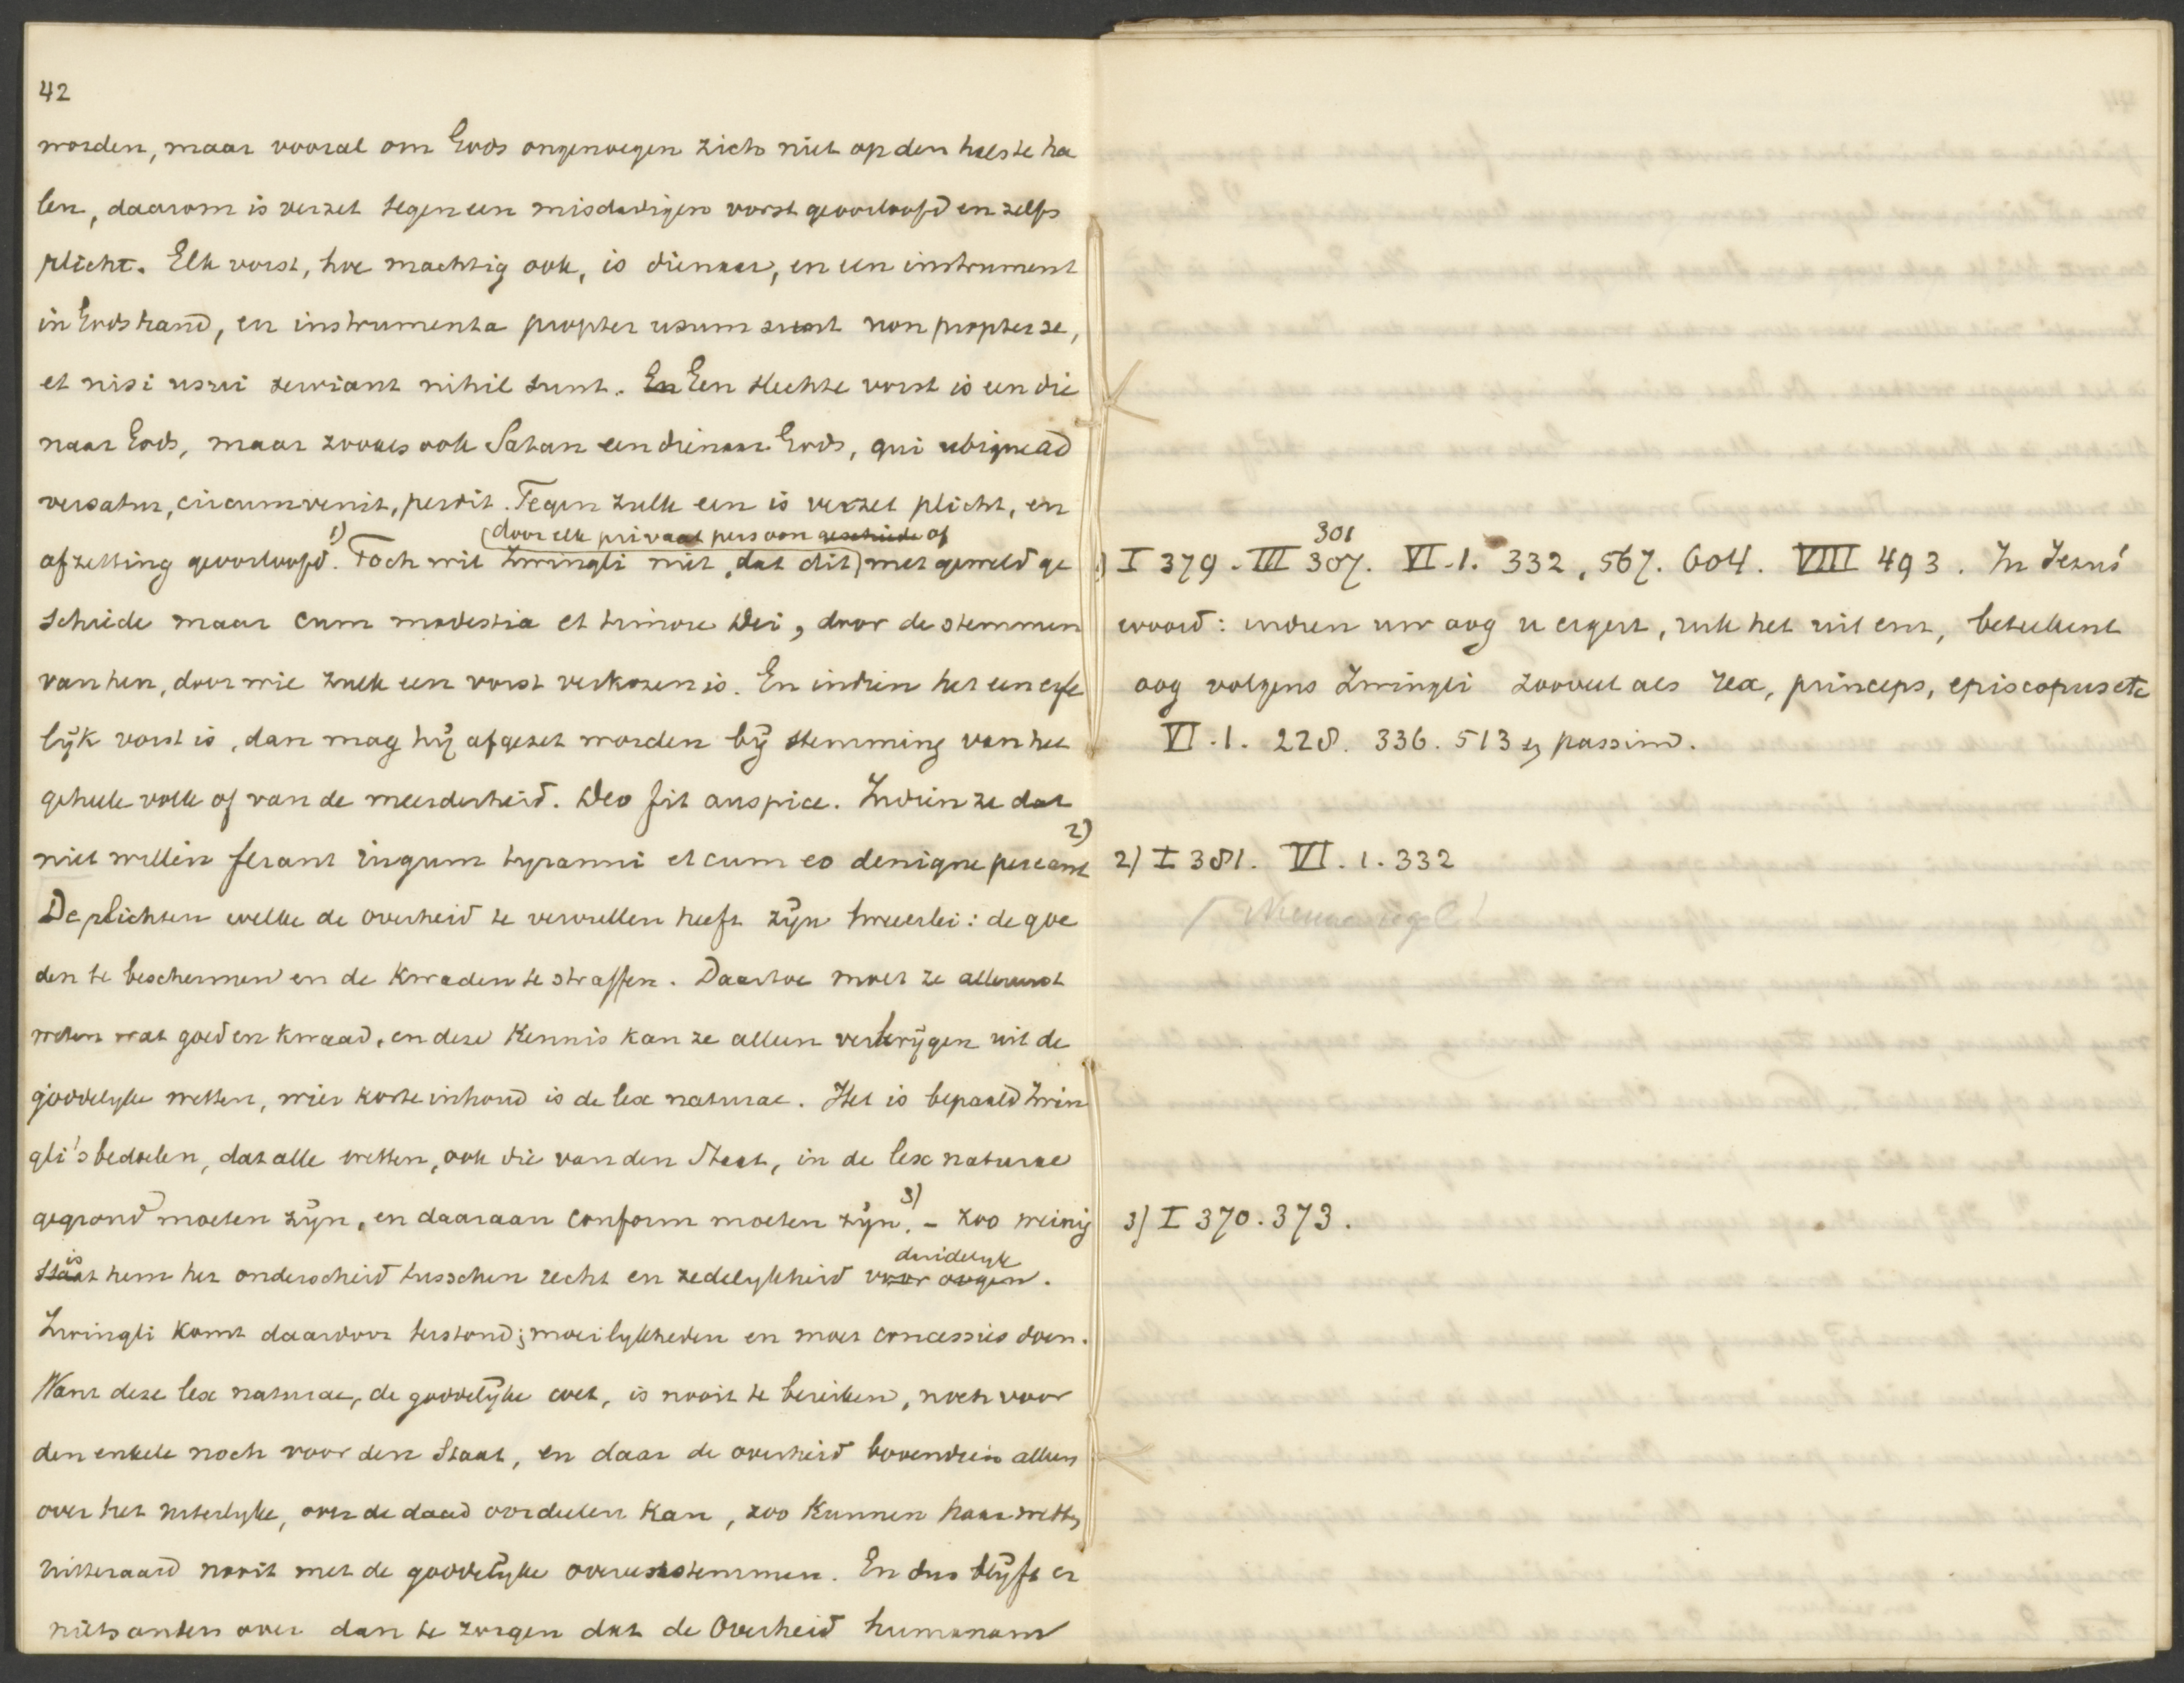 42
worden, maar vooral om Gods ongenoegen zich niet op den hals te ha
len, daarom is verzet tegen een misdadigen vorst geoorloofd en zelfs
plicht. Elk vorst, hoe machtig ook, is dienaar, en een instrument
in Gods hand, en instrumenta propter usum sunt non propter se,
et nisi usui serviant nihil sunt. En Een slechte vorst is een die
naar Gods, maar zooals ook Satan een dienaar Gods, qui ubique ad
versatur, circumvenit, perdit. Tegen zulk een is verzet plicht, en
(door elk privaat persoon geschiede of
afzetting geoorloofd. 1) Toch wil Zwingli niet, dat dit) met geweld ge
schiede maar cum modestia et timore Dei, door de stemmen
van hen, door wie zulk een vorst verkozen is. En indien het een erfe
lijk vorst is, dan mag hij afgezet worden bij stemming van het
geheele volk of van de meerderheid. Deo fit auspice. Indien ze dat
niet willen ferant iugum tyranni et cum eo denique pereant 2)
De plichten welke de overheid te vervullen heeft zijn tweeerlei: de goe
den te beschermen en de kwaden te straffen. Daartoe moet ze allereerst
weten wat goed en kwaad, en deze kennis kan ze alleen verkrijgen uit de
goddelyke wetten, wier korte inhoud is de lex naturae. Het is bepaald Zwin
gli's bedoelen, dat alle wetten, ook die van den Staat, in de lex naturae
gegrond moeten zijn, en daaraan conform moeten zijn. 3) - Zoo weinig
is duidelyk
staat hem het onderscheid tusschen recht en zedelykheid voor oogen.
Zwingli komt daardoor terstond in moeilykheden en moet concessies doen.
Want deze lex naturae, de goddelijke wet, is nooit te bereiken, noch voor
den enkele noch voor den Staat, en daar de overheid bovendien alleen
over het uiterlyke, over de daad oordeelen kan, zoo kunnen haar wetten
uitteraard nooit met de goddelijke overeenstemmen. En dus blijft er
niets anders over dan te zorgen dat de Overheid humanam
301
1) I 379. III 307. VI.1. 332, 567. 604. VIII 493. In Jezus'
woord: indien uw oog u ergert, ruk het uit enz, beteekent
oog volgens Zwingli zooveel als rex, princeps, episcopus etc
VI.1. 228. 336. 513 en passim.
2) I 381. VI.1.332
/ Nieuwe regel!
3) I 370.373.